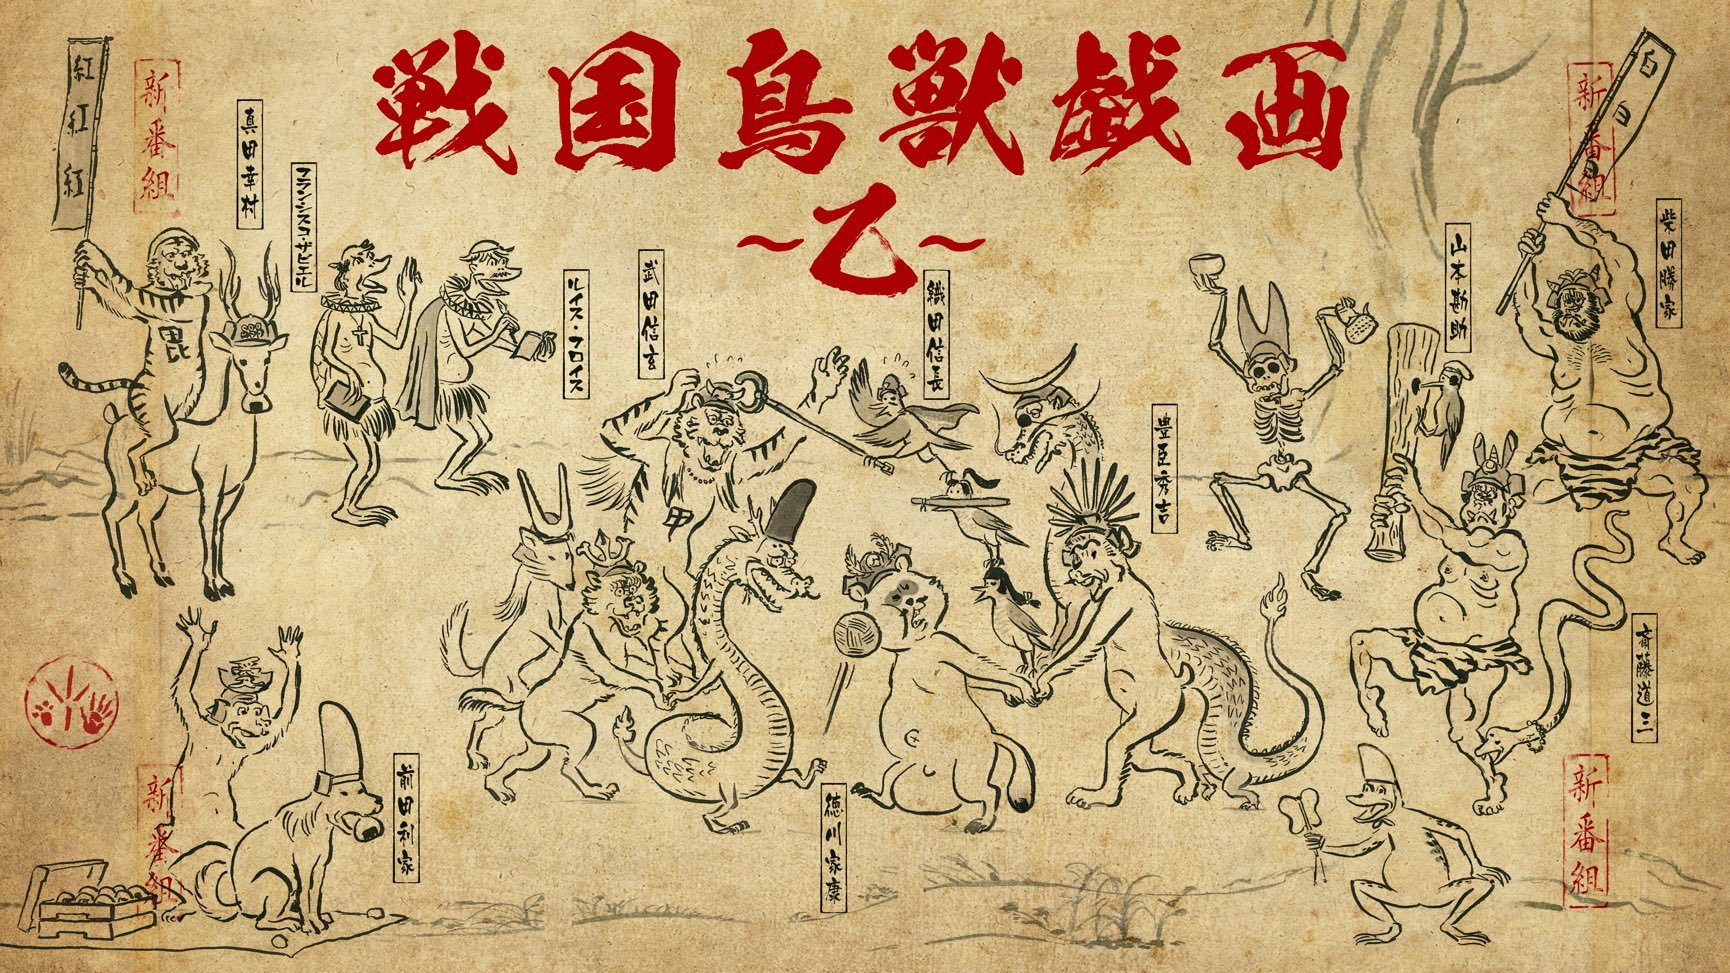 戦国鳥獣戯画
～乙～
紅
紅
紅
新番組
真田幸村
フランシスコ・ザビエル
ルイス・フロイス
武田信玄
織田信長
豊臣秀吉
山本勘助
新番組
白
白
白
柴田勝家
毘
斎藤道三
前田利家
徳川家康
新番組
新番組